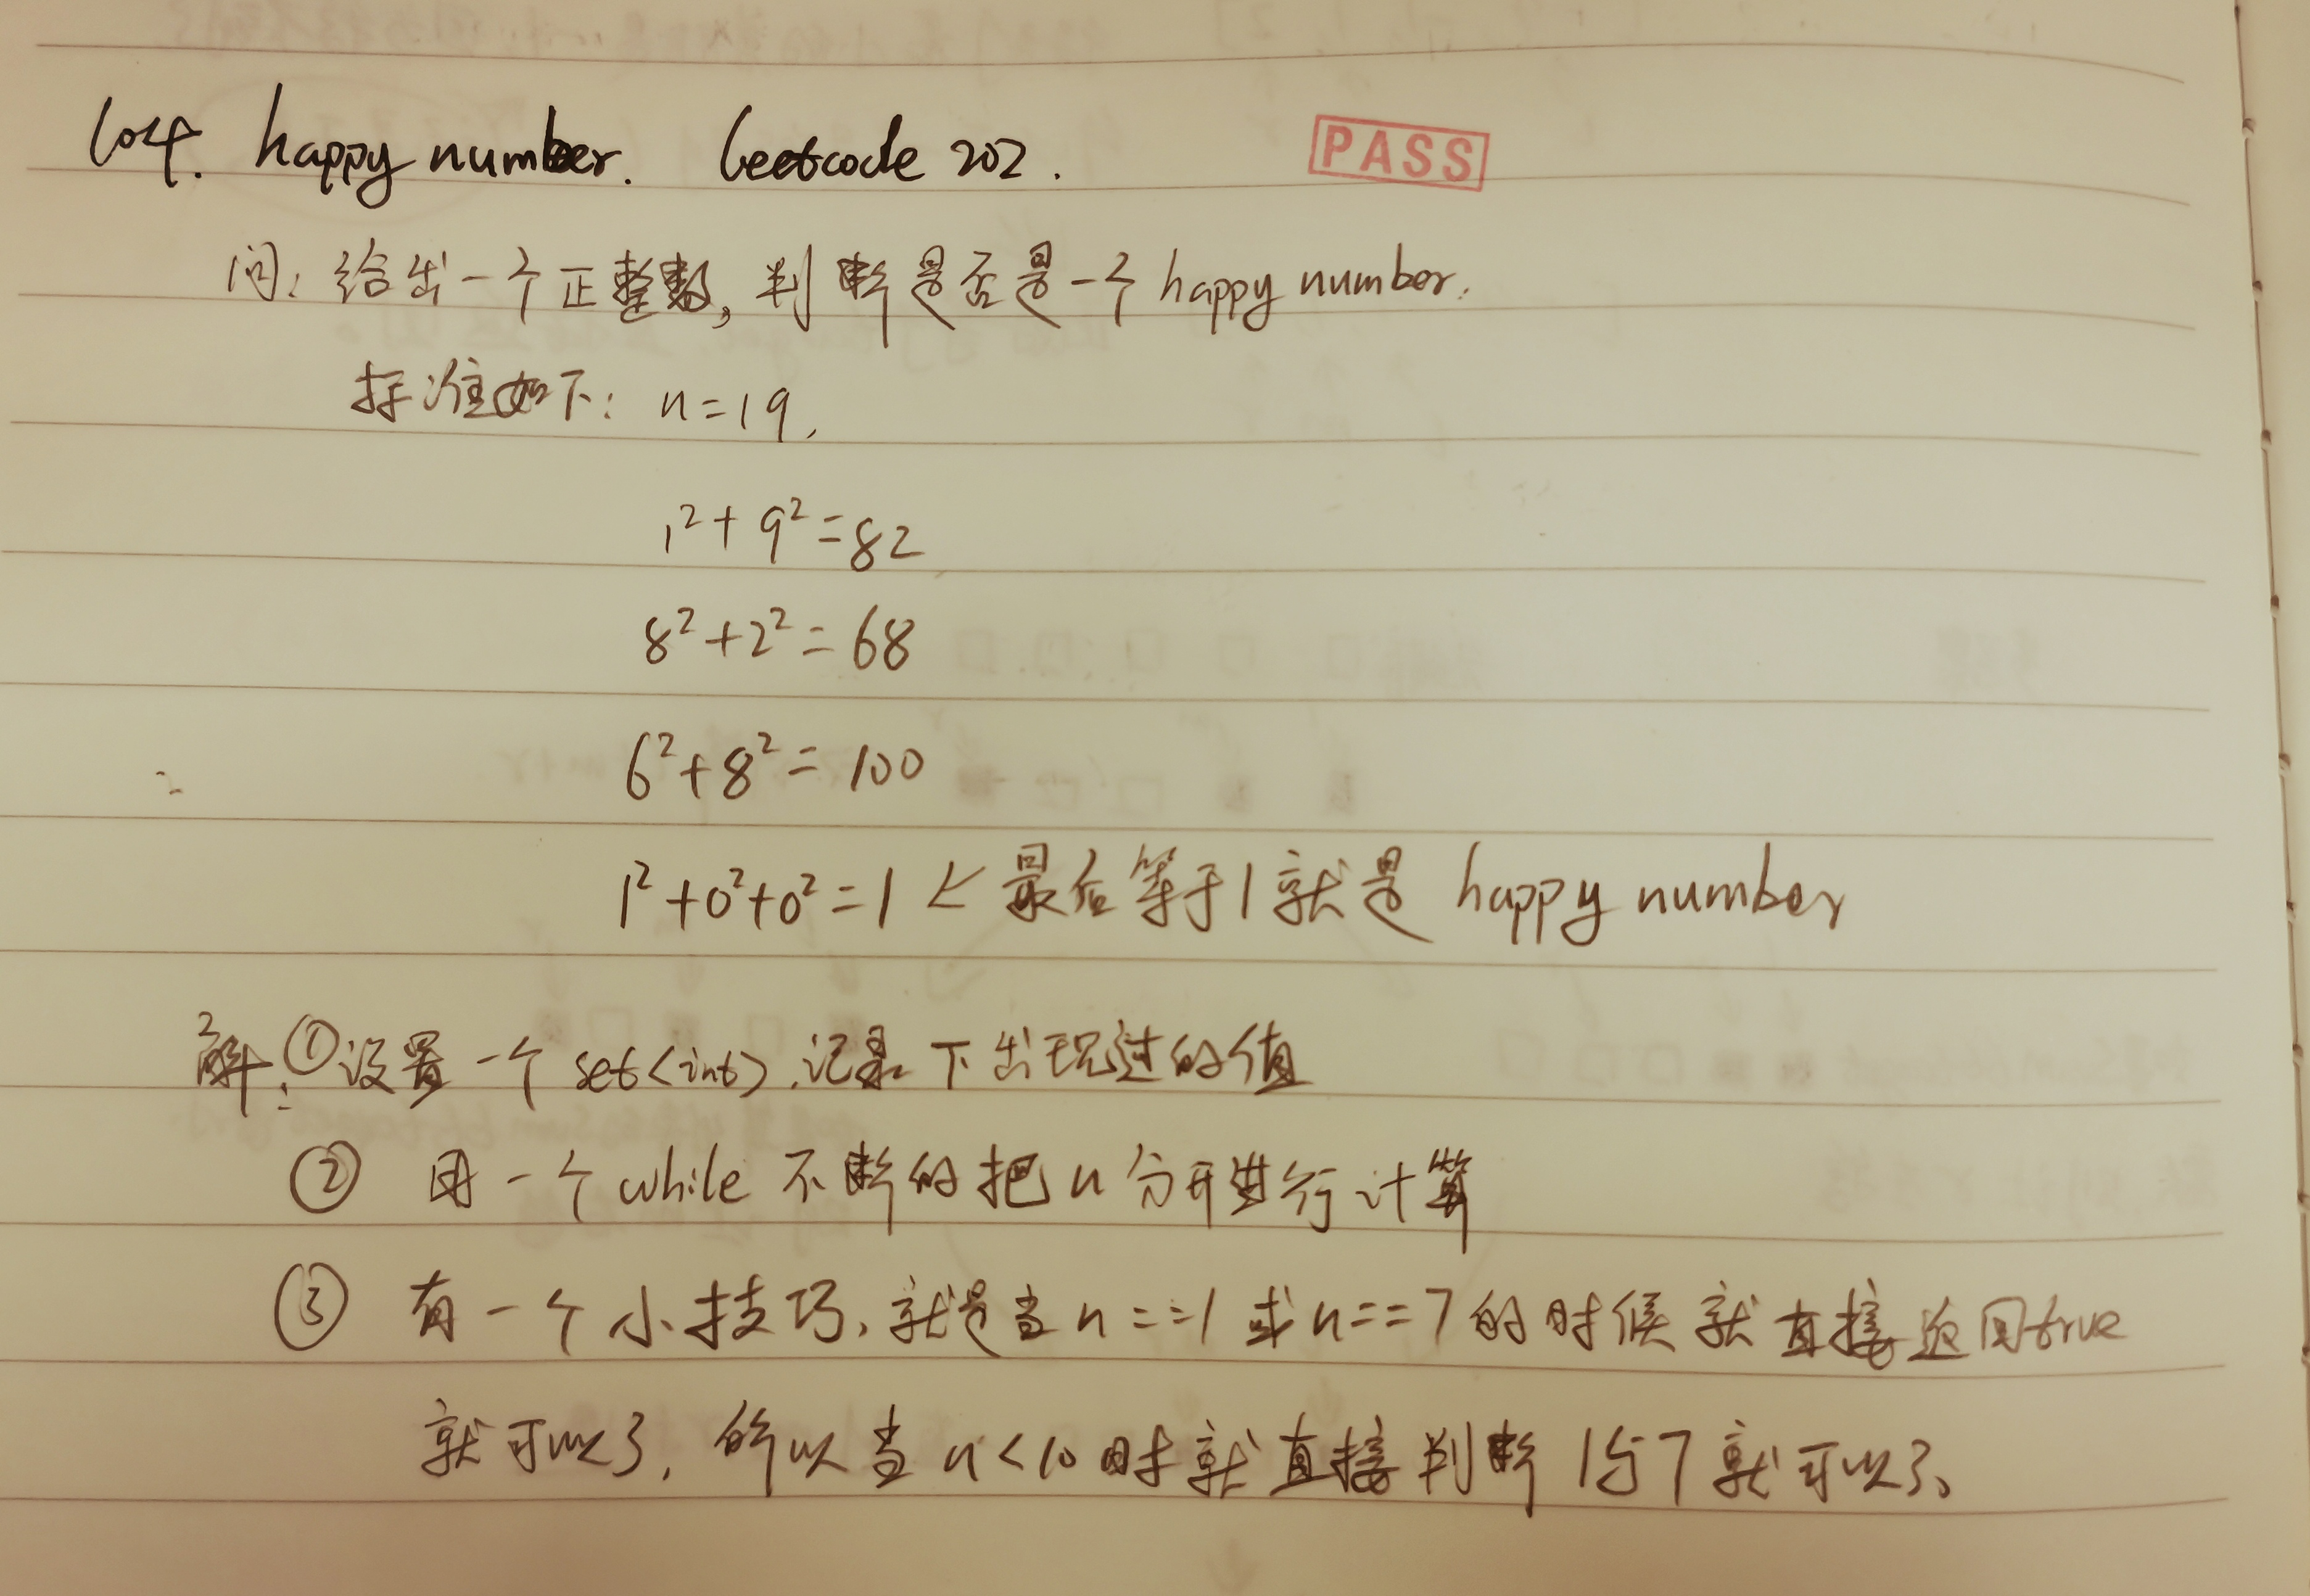 104. happy number. leetcode 202.
PASS
问: 给出一个正整数, 判断是否是一个 happy number.
标准如下: n=19,
1²+9²=82
8²+2²=68
6²+8²=100
1²+0²+0²=1 ← 最后等于1就是 happy number
解: ①设置一个 set<int>, 记录下出现过的值
② 用一个 while 不断的把 n 分开进行计算
③ 有一个小技巧, 就是当 n==1 或 n==7 的时候就直接返回true
就可以了, 所以当 n<10 时就直接判断 1与7 就可以了。